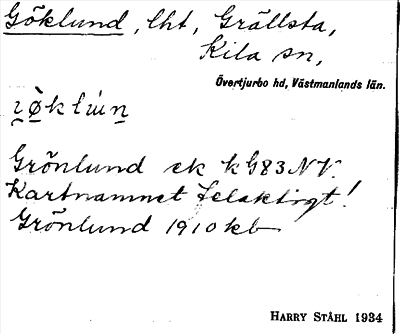 Göklund, lht, Grällsta,
Kila sn,
Övertjurbo hd, Västmanlands län.
Grönlund ek kG83NV.
Kartnamnet felaktigt!
Grönlund 1910 kb
HARRY STÅHL 1934